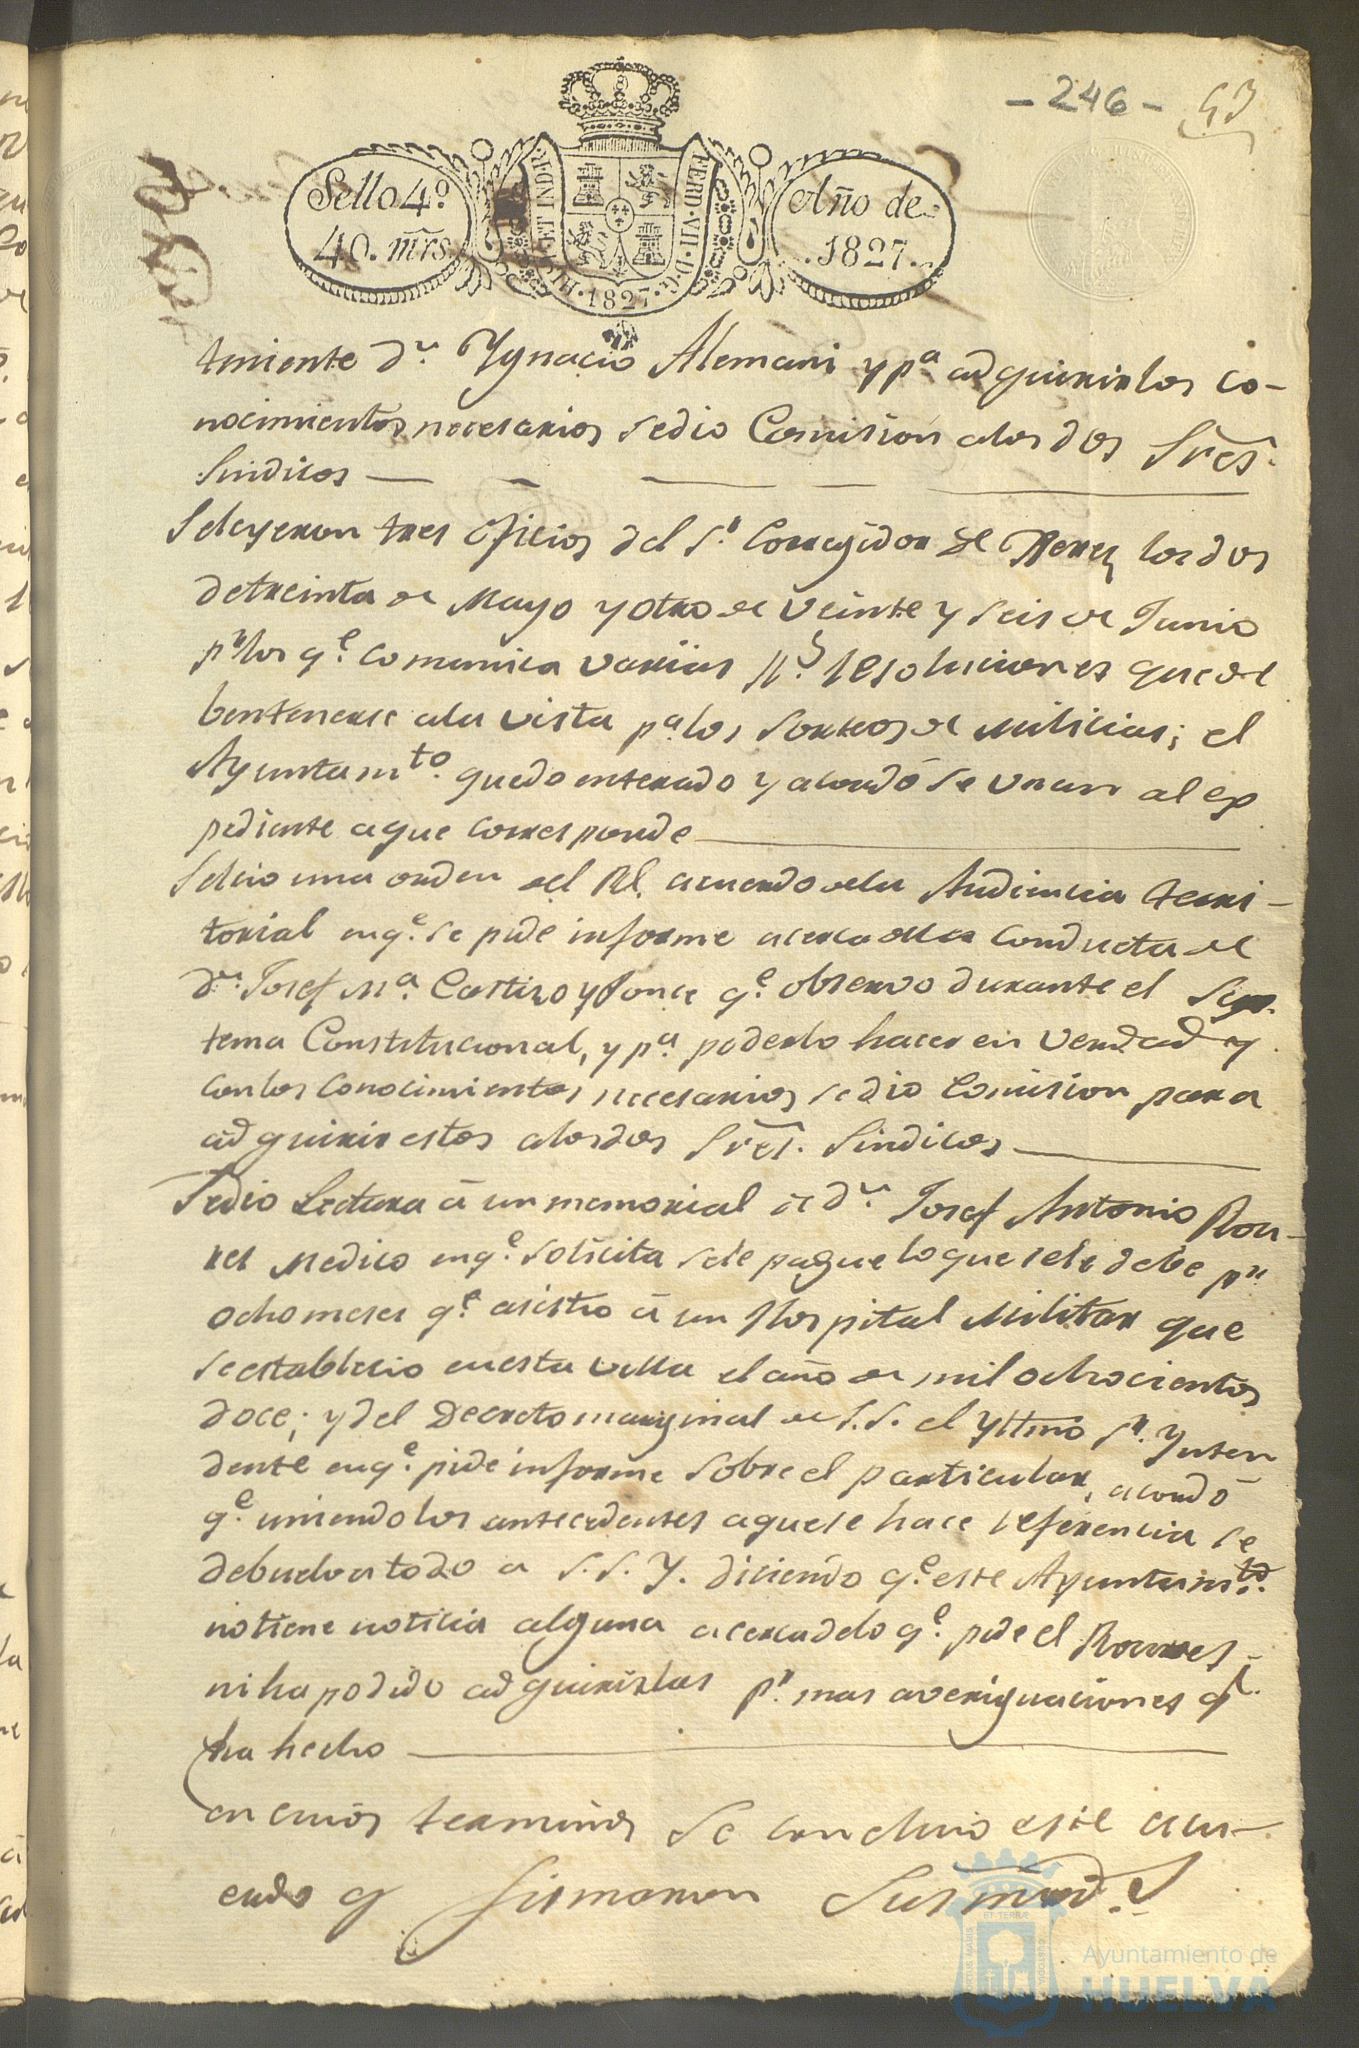 - 246 - 53
Sello 4º. 40. mrs.
HISP. ET IND. R. FERD. VII. D. G. 1827.
Año de 1827.
tniente Dn. Ygnacio Alemani y pa. adquirir los co-
nocimientos necesarios se dio Comision a los dos Sres.
Sindicos
Se leyeron tres oficios del Sr. Corregidor de Xerez los dos
de treinta de Mayo y otro de Veinte y seis de Junio
pr. los qe. comunica varias Rs. resoluciones que de
ben tenerse a la vista pa. los Sorteos de Milicias; el
Ayuntamto. quedo enterado y acordó se unan al ex
pediente a que corresponde
Se leio una orden del Rl. acuerdo de la Audiencia terri-
torial en qe. se pide informe acerca de la conducta de
Dn. Josef Ma. Castizo y Ponce qe. observo durante el Sys-
tema Constitucional, y pa. poderlo hacer en verdad y
con los conocimientos necesarios se dio Comision para
adquirir estos a los dos Sres. Sindicos
Se dio Lectura á un memorial de Dn. Josef Antonio Rou-
res Medico en qe. solicita se le pague lo que se le debe pr.
ocho meses qe. asistio á un Hospital Militar que
se establecio en esta villa el año de mil ochocientos
doce; y del Decreto marginal de S.S. el Yltmo Sr. Ynten
dente en qe. pide informe sobre el particular, acordó
qe. uniendo los antecedentes a que se hace referencia se
debuelva todo a S.S.Y. diciendo qe. este Ayuntamto.
no tiene noticia alguna acerca de lo qe. pide el Roures
ni ha podido adquirirlas pr. mas averiguaciones qe.
ha hecho
en cuios terminos se concluio este acu-
erdo q firmaron Sus mrds.
Ayuntamiento de
HUELVA